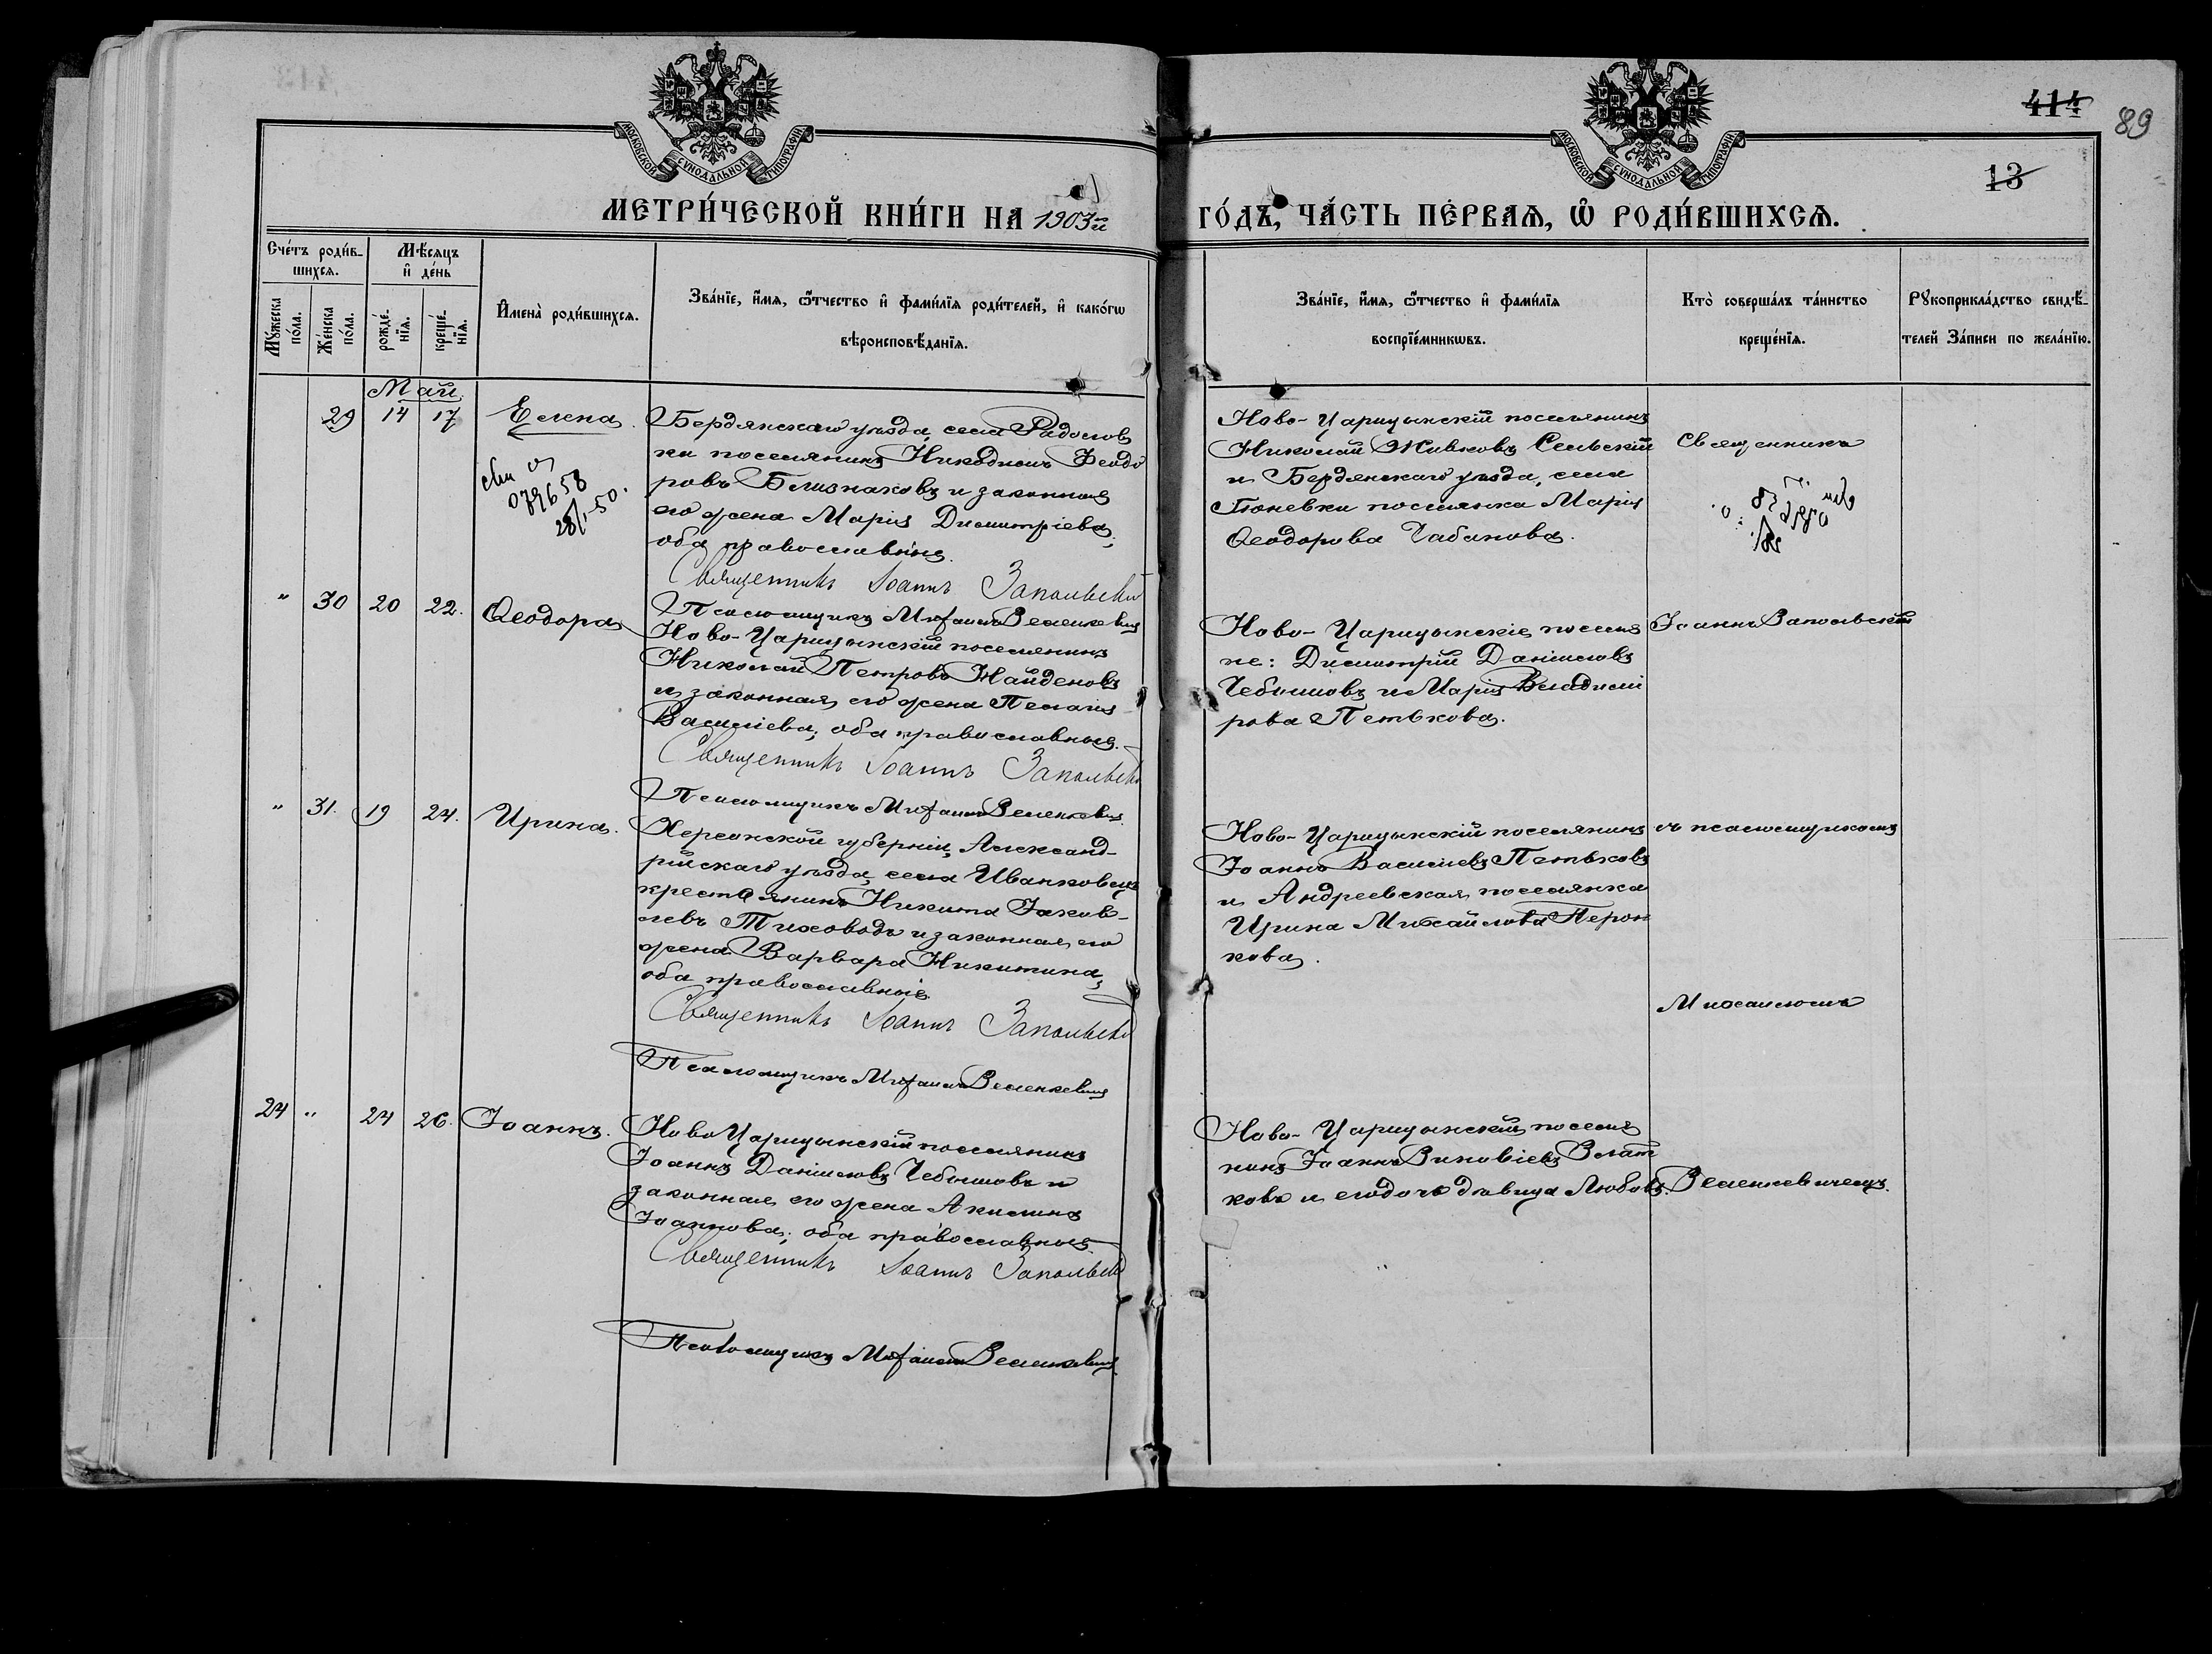 414
89
13
МОСКОВСКОЙ СѴНОДАЛЬНОЙ ТИПОГРАФІИ
МОСКОВСКОЙ СѴНОДАЛЬНОЙ ТИПОГРАФІИ
МЕТРИ́ЧЕСКОЙ КНИ́ГИ НА 1903й ГО́ДЪ, ЧА́СТЬ ПЕ́РВАЯ, Ѿ РОДИ́ВШИХСЯ.
Сче́тъ роди́в-
шихся.
Мѣ́сяцъ
и҆ де́нь
Мꙋ́жеска
по́ла.
Же́нска
по́ла.
рожде́-
нїя.
креще́-
нїя.
И҆мена̀ роди́вшихся.
Зва́нїе, и҆́мя, ѻ҆́тчество и҆ фами́лїя роди́телей, и҆ како́гѡ
вѣроисповѣ́данїя.
Зва́нїе, и҆́мя, ѻ҆́тчество и҆ фами́лїя
воспрїе́мникѡвъ.
Кто̀ соверша́лъ та́инство
креще́нїя.
Рꙋкоприкла́дство свидѣ́-
телей За́писи по жела́нїю.
Май
29 14 17 Елена.
Бердянскаго уѣзда, села Радолов
ки поселянинъ Никодимъ Ѳеодо
ровъ Близнаковъ и законная
его жена Марія Димитріева;
оба православные.
Священникъ Іоаннъ Запольскій
Псаломщикъ Михаилъ Веленкевичъ
079658
28/I-50.
Ново-Царицынскій поселянинъ
Николай Живковъ Сельскій
и Бердянскаго уѣзда, села
Гюневки поселянка Марія
Ѳеодорова Чабанова.
Священникъ
" 30 20 22. Ѳеодора
Ново-Царицынскій поселянинъ
Николай Петровъ Найденовъ
и законная его жена Пелагія
Василіева; оба православные.
Священникъ Іоаннъ Запольскій
Псаломщикъ Михаилъ Веленкевичъ
Ново-Царицынскіе поселя
не: Димитрій Даніиловъ
Чебышовъ и Марія Владими
рова Петькова.
Іоаннъ Запольскій
" 31. 19 24. Ирина.
Херсонской губерніи, Александ-
рійскаго уѣзда, села Иванковецъ
крестьянинъ Никита Іаков-
левъ Тиховодъ и законная его
жена Варвара Никитина,
оба православные
Священникъ Іоаннъ Запольскій
Псаломщикъ Михаилъ Веленкевичъ
Ново-Царицынскій поселянинъ
Іоаннъ Василіевъ Петьковъ
и Андреевская поселянка
Ирина Михайлова Перон
кова.
съ псаломщикомъ
Михаиломъ
24 " 24 26. Іоаннъ.
Ново Царицынскій поселянинъ
Іоаннъ Даніиловъ Чебышовъ и
законная его жена Акилина
Іоаннова; оба православные.
Священникъ Іоаннъ Запольскій
Псаломщикъ Михаилъ Веленкевичъ
Ново-Царицынскій поселя
нинъ Іоаннъ Зиновіевъ Влат
ковъ и его дочь дѣвица Любовь.
Веленкевичемъ.